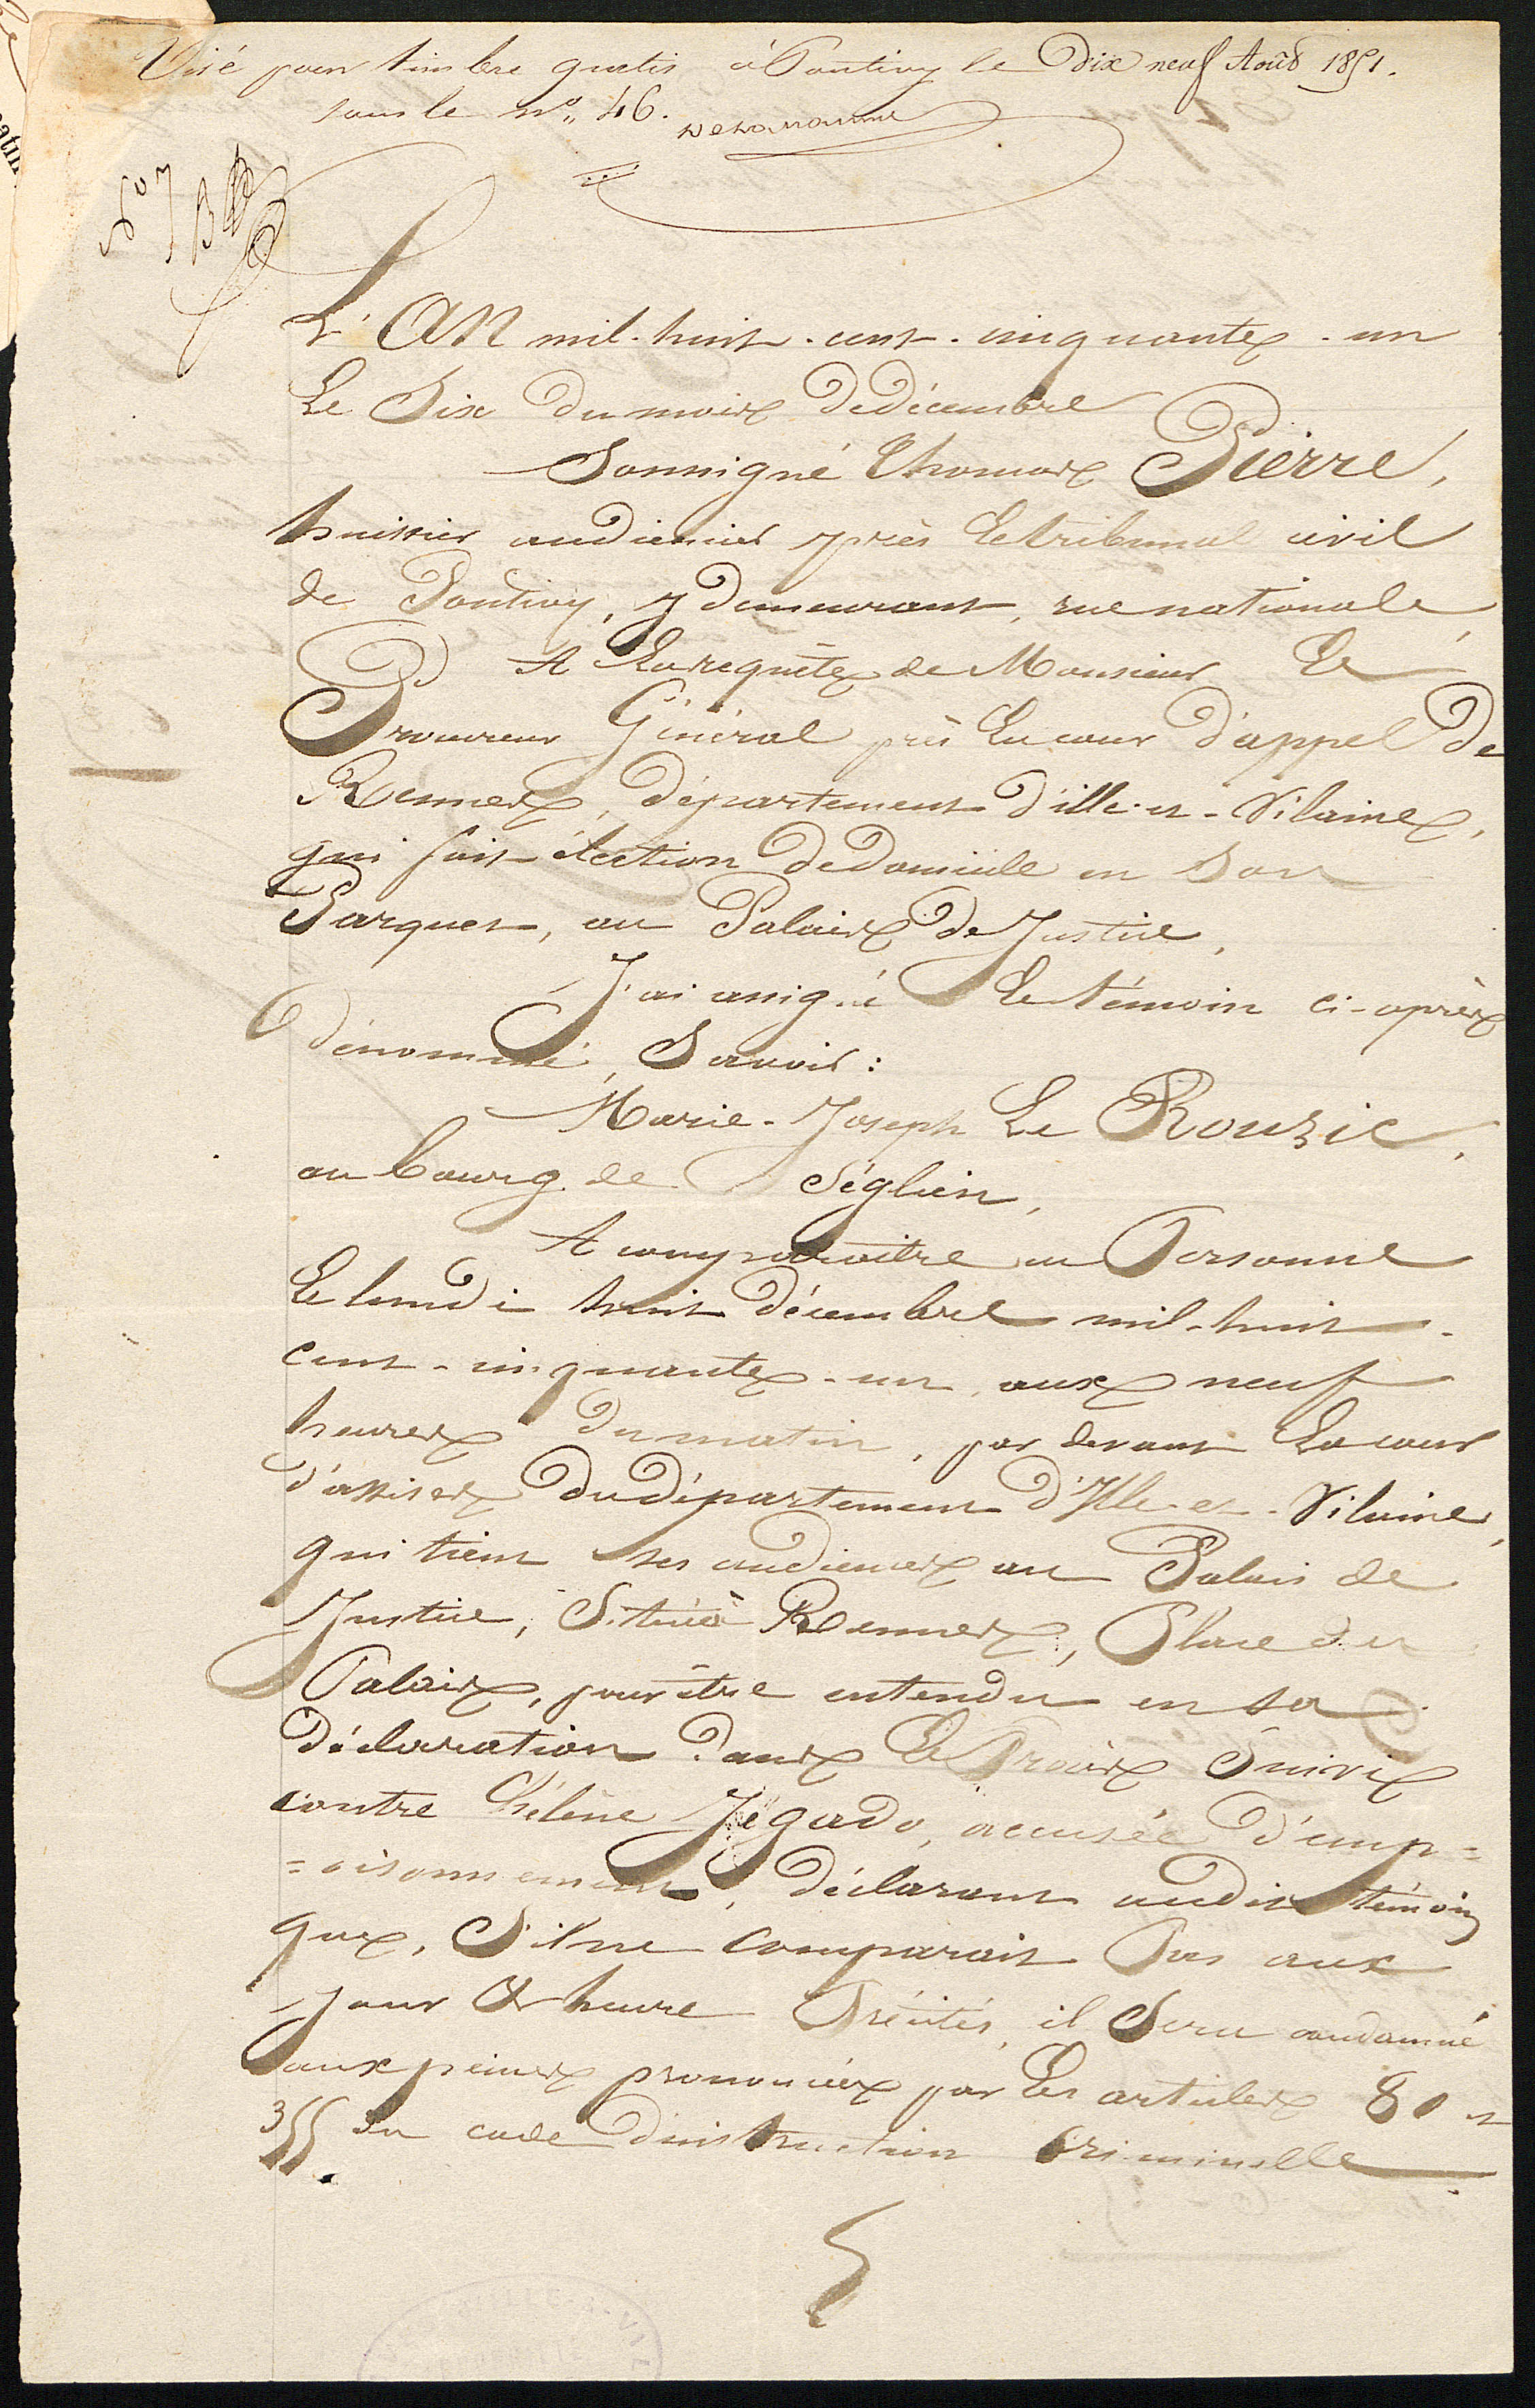 Visé pour timbre gratis à Pontivy le dix neuf Août 1851.
sous le n°. 46.
N° 7
L'AN mil-huit-cent-cinquante-un
Le Six du mois de décembre
Soussigné Thomas Pierre,
huissier audiencier près le tribunal civil
de Pontivy, y demeurant, rue nationale,
A la requête de Monsieur Le
Procureur Général près La cour d'appel de
Rennes, département d'ille-et-Vilaine,
qui fait élection de domicile en Son
Parquet, au Palais de Justice,
J'ai assigné Le témoin ci-après
dénommé, Savoir :
Marie-Joseph Le Rouzic,
au bourg de Séglien,
A comparaître en Personne
Le lundi huit décembre mil-huit-
cent-cinquante-un, aux neuf
heures du matin, par devant La cour
d'assises du département d'Ille-et-Vilaine,
qui tient ses audiences au Palais de
Justice, Situé à Rennes, Place du
Palais, pour être entendu en sa
déclaration dans Le Procès Suivi
contre hélène Jégado, accusée d'emp=
=oisonnement, déclarant audit témoin
que, S'il ne comparait Pas aux
jour & heure Précités, il Sera condamné
aux peines prononcées par Les articles 80 et
355 du code d'instruction Criminelle.